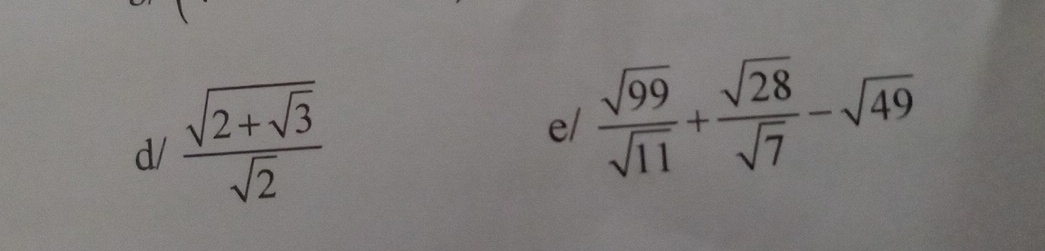 d/ \frac{\sqrt{2+\sqrt{3}}}{\sqrt{2}}
e/ \frac{\sqrt{99}}{\sqrt{11}} + \frac{\sqrt{28}}{\sqrt{7}} - \sqrt{49}